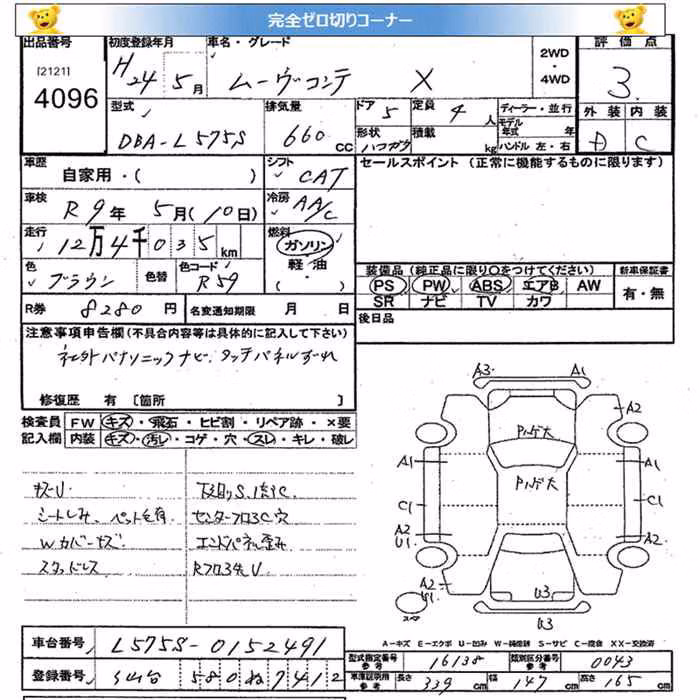 完全ゼロ切りコーナー
出品番号 初度登録年月 車名・グレード 2WD ・ 4WD 評価点
[2121] 4096 H24 5月 ムーヴコンテ X 3
外装 内装
D C
型式 排気量 ドア 5 定員 4人 ディーラー・並行
DBA-L575S 660 CC 形状 ハコガタ 積載 kg モデル年式 年 ハンドル 左・右
車歴 自家用・( ) シフト CAT セールスポイント (正常に機能するものに限ります)
車検 R9年 5月(10日) 冷房 AA/C
走行 12万4千035km 燃料 ガソリン 軽・油 ( )
色 ブラウン 色替 色コード R59
装備品 (純正品に限り○をつけてください) 新車保証書
PS PW ABS エアB AW 有・無
SR ナビ TV カワ
R券 8280円 名変通知期限 月 日 後日品
注意事項申告欄 (不具合内容等は具体的に記入して下さい)
社外パナソニックナビ タッチパネルずれ
修復歴 有 〔箇所 〕
検査員記入欄 FW キズ・飛石・ヒビ割・リペア跡・×要
内装 キズ・汚レ・コゲ・穴・スレ・キレ・破レ
キズU 下廻りS、腐C
シートしみ、ペット毛有 センターフロアC穴
Wカバーキズ エンドパネル歪み
スタッドレス
A3 A1
A2
A1 A1
C1 C1
A2 U1 A2
A2
U3
スペア
U3
A-キズ E-エクボ U-凹み S-サビ C-腐食 XX-交換済
車台番号 L575S-0152491
型式指定番号 参考 16138 類別区分番号 参考 0043
登録番号 仙台 580 ね 7412
車庫証明用 参考 長さ 339cm 幅 147cm 高さ 165cm